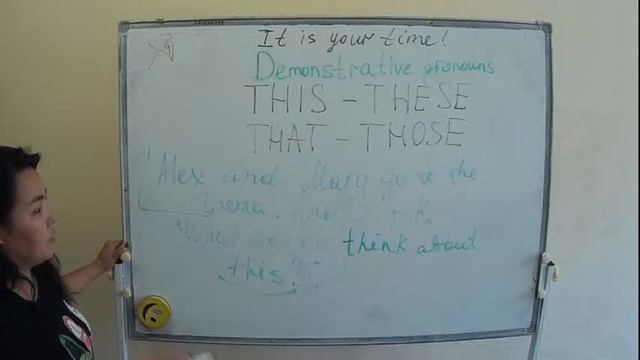 It is your time!
Demonstrative pronouns
THIS - THESE
THAT - THOSE
"Alex and Mary go to the
cinema. And I ask.
"What do you think about
this?"